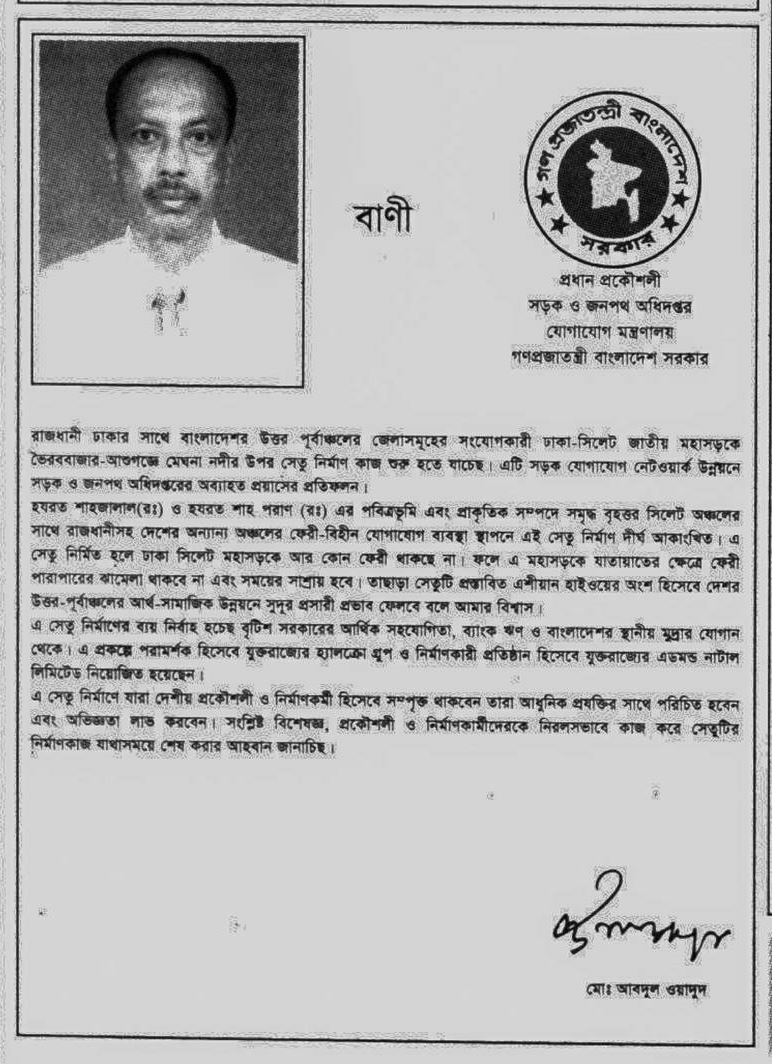 বাণী
গণ প্রজাতন্ত্রী বাংলাদেশ
সরকার
প্রধান প্রকৌশলী
সড়ক ও জনপথ অধিদপ্তর
যোগাযোগ মন্ত্রণালয়
গণপ্রজাতন্ত্রী বাংলাদেশ সরকার
রাজধানী ঢাকার সাথে বাংলাদেশর উত্তর পূর্বাঞ্চলের জেলাসমূহের সংযোগকারী ঢাকা-সিলেট জাতীয় মহাসড়কে
ভৈরববাজার-আশুগঞ্জে মেঘনা নদীর উপর সেতু নির্মাণ কাজ শুরু হতে যাচেছ। এটি সড়ক যোগাযোগ নেটওয়ার্ক উন্নয়নে
সড়ক ও জনপথ অধিদপ্তরের অব্যাহত প্রয়াসের প্রতিফলন।
হযরত শাহজালাল(রঃ) ও হযরত শাহ পরাণ (রঃ) এর পবিত্রভূমি এবং প্রাকৃতিক সম্পদে সমৃদ্ধ বৃহত্তর সিলেট অঞ্চলের
সাথে রাজধানীসহ দেশের অন্যান্য অঞ্চলের ফেরী-বিহীন যোগাযোগ ব্যবস্থা স্থাপনে এই সেতু নির্মাণ দীর্ঘ আকাংখিত। এ
সেতু নির্মিত হলে ঢাকা সিলেট মহাসড়কে আর কোন ফেরী থাকছে না। ফলে এ মহাসড়কে যাতায়াতের ক্ষেত্রে ফেরী
পারাপারের ঝামেলা থাকবে না এবং সময়ের সাশ্রয় হবে। তাছাড়া সেতুটি প্রস্তাবিত এশীয়ান হাইওয়ের অংশ হিসেবে দেশর
উত্তর-পূর্বাঞ্চলের আর্থ-সামাজিক উন্নয়নে সুদূর প্রসারী প্রভাব ফেলবে বলে আমার বিশ্বাস।
এ সেতু নির্মাণের ব্যয় নির্বাহ হচেছ বৃটিশ সরকারের আর্থিক সহযোগিতা, ব্যাংক ঋণ ও বাংলাদেশর স্থানীয় মুদ্রার যোগান
থেকে। এ প্রকল্পে পরামর্শক হিসেবে যুক্তরাজ্যের হ্যালক্রো গ্রুপ ও নির্মাণকারী প্রতিষ্ঠান হিসেবে যুক্তরাজ্যের এডমন্ড নাটাল
লিমিটেড নিয়োজিত হয়েছেন।
এ সেতু নির্মাণে যারা দেশীয় প্রকৌশলী ও নির্মাণকর্মী হিসেবে সম্পৃক্ত থাকবেন তারা আধুনিক প্রযক্তির সাথে পরিচিত হবেন
এবং অভিজ্ঞতা লাভ করবেন। সংশ্লিষ্ট বিশেষজ্ঞ, প্রকৌশলী ও নির্মাণকার্মীদেরকে নিরলসভাবে কাজ করে সেতুটির
নির্মাণকাজ যাথাসময়ে শেষ করার আহবান জানাচিছ।
মোঃ আবদুল ওয়াদুদ